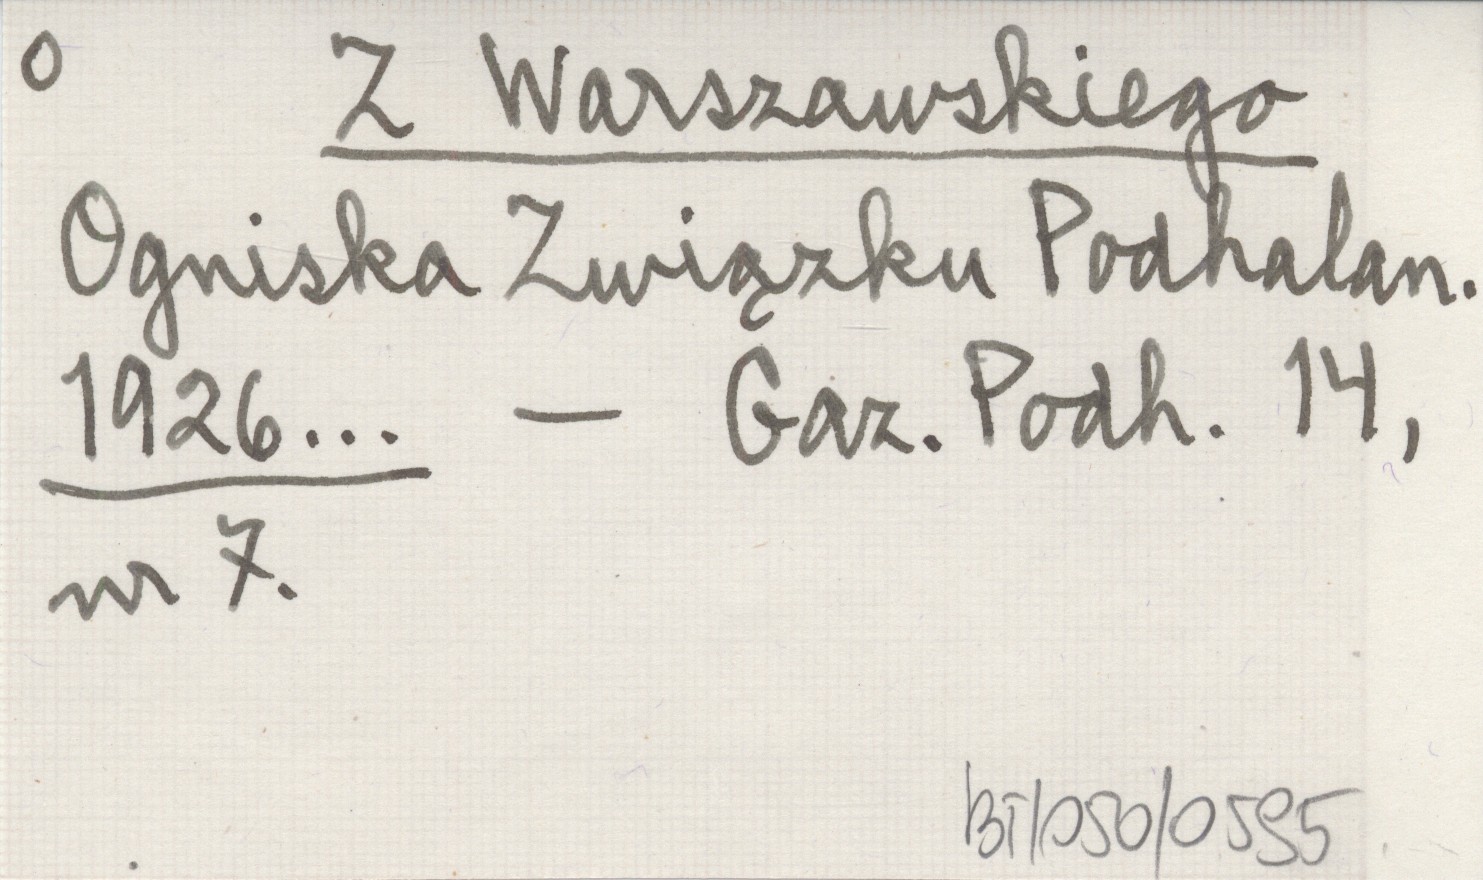 o Z Warszawskiego
Ogniska Związku Podhalan.
1926... — Gaz. Podh. 14,
nr 7.
BT/050/0595